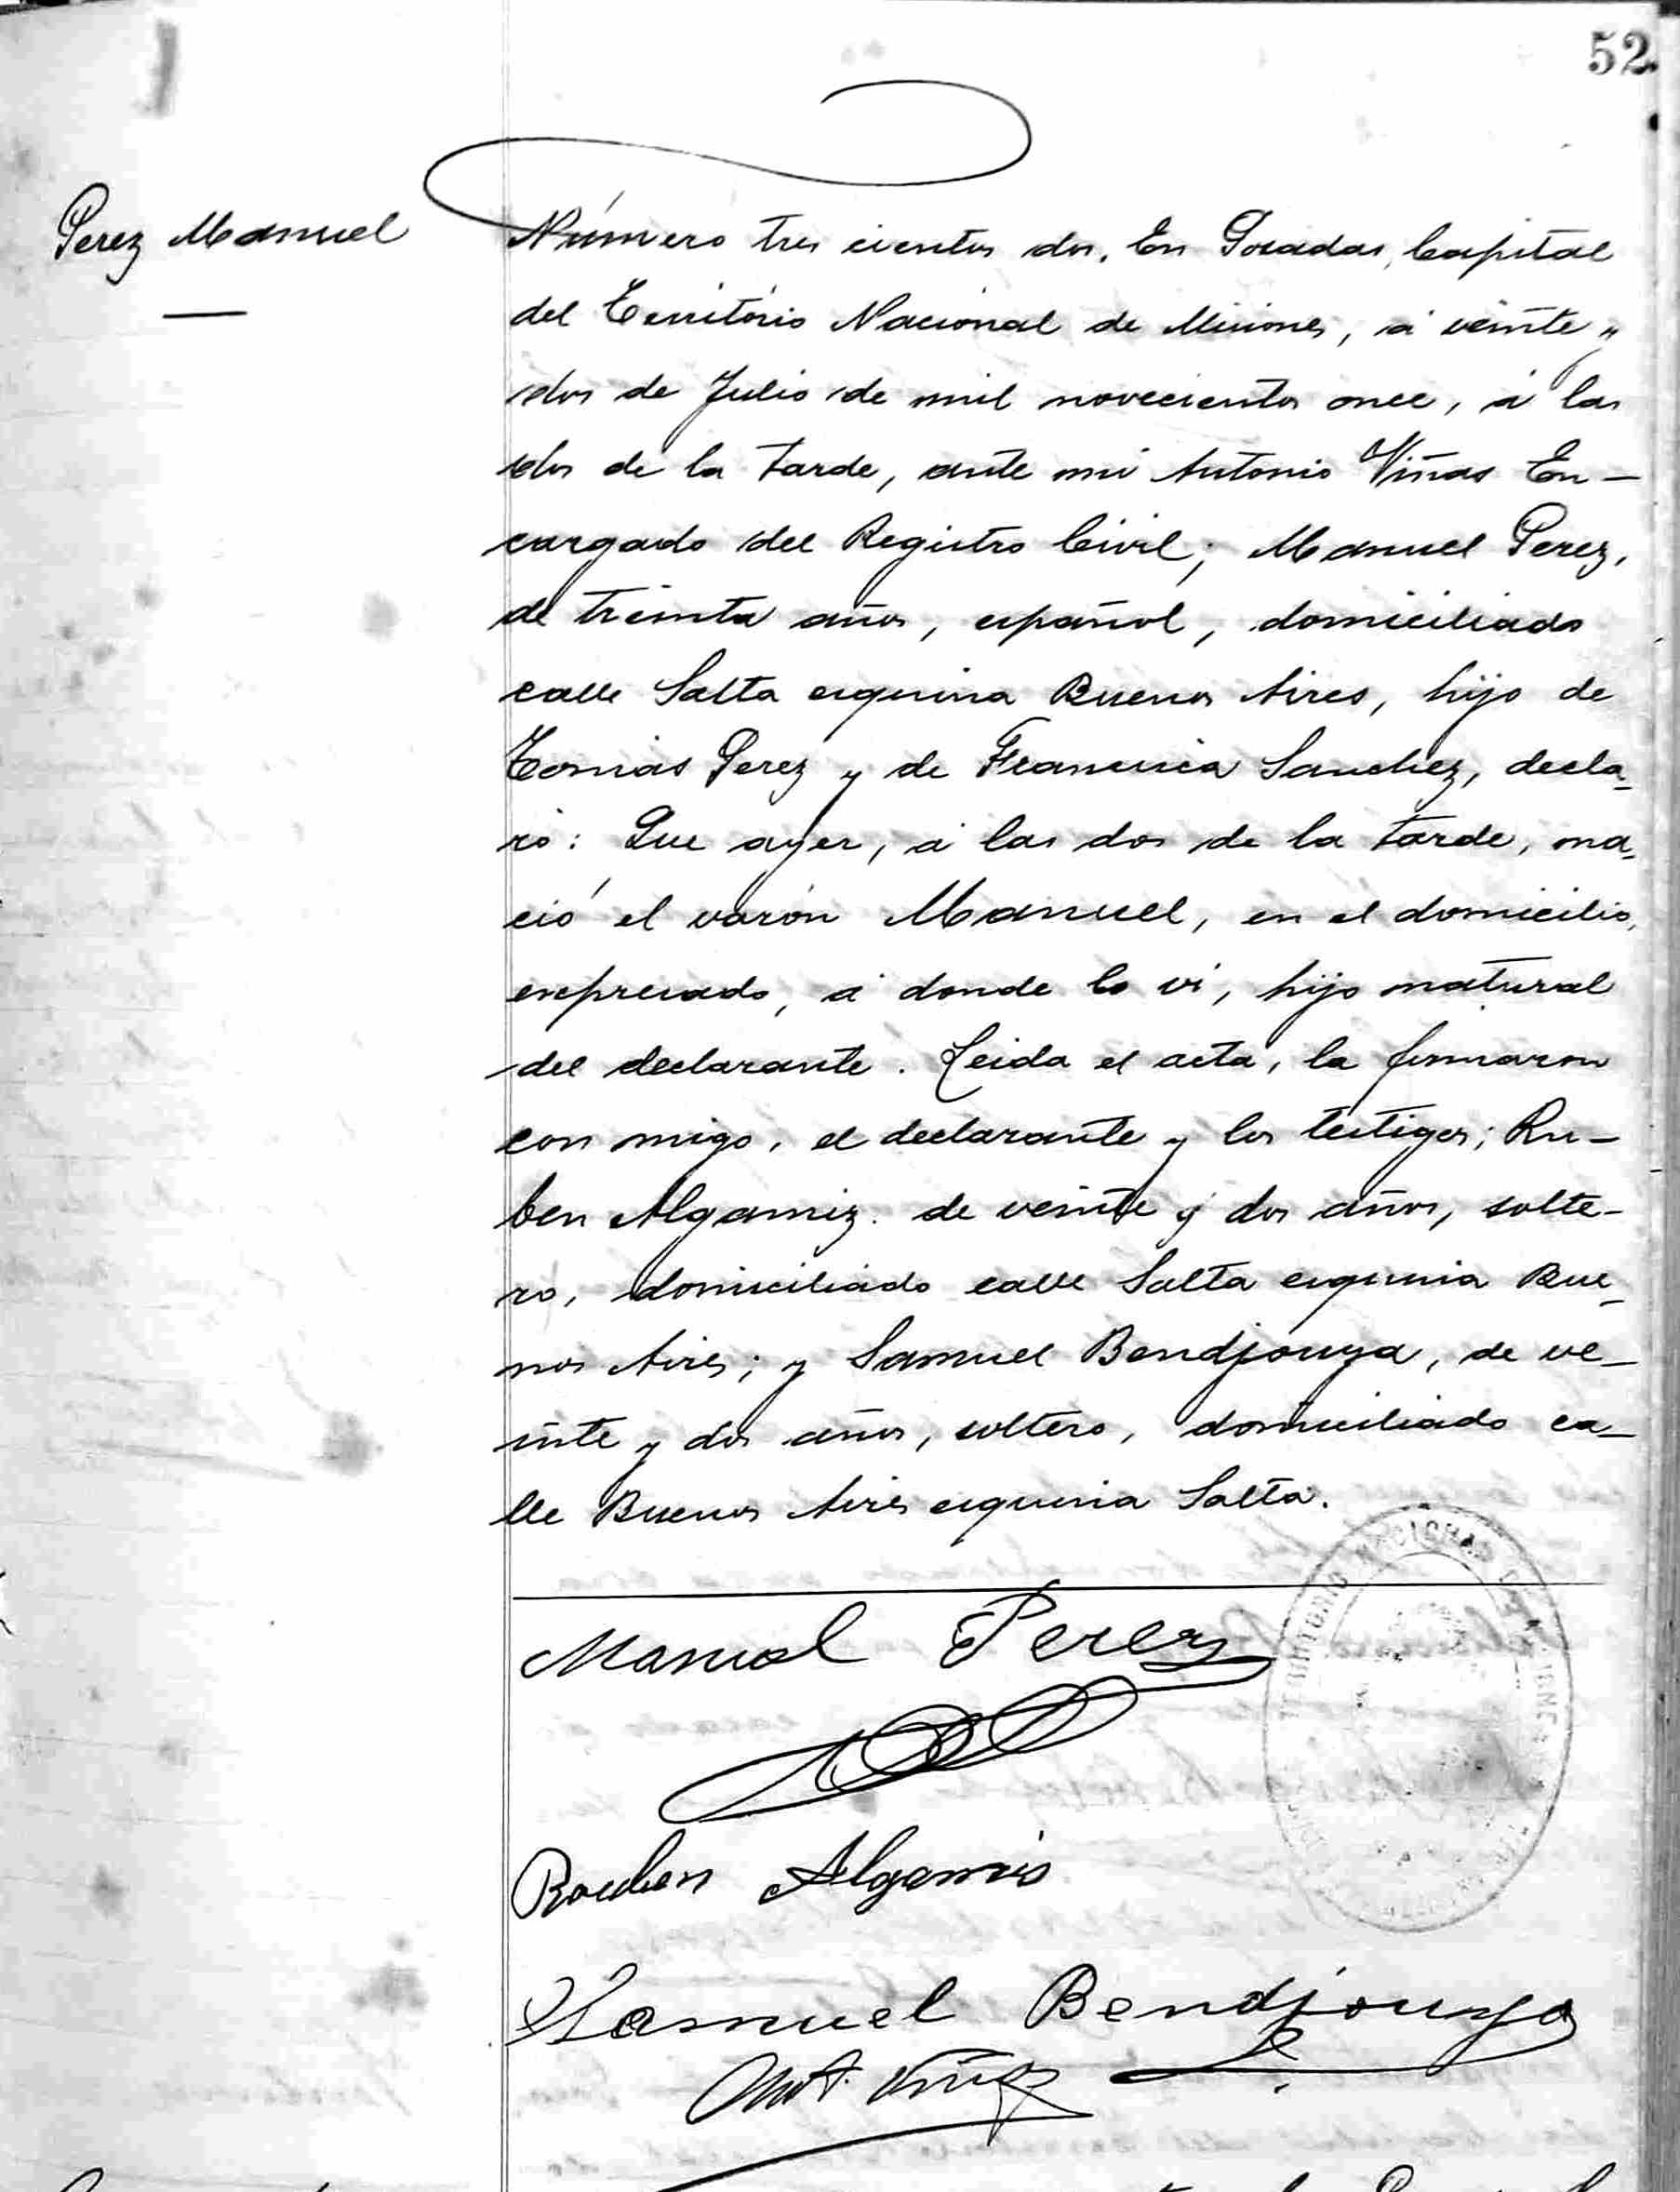 52
Perez Manuel
Número tres cientos dos. En Posadas, Capital
del Território Nacional de Misiones, á veinte y
dos de Julio de mil novecientos once, á las
dos de la tarde, ante mi Antonio Viñas En-
cargado del Registro Civil; Manuel Perez,
de treinta años, español, domiciliado
calle Salta esquina Buenos Aires, hijo de
Tomás Perez y de Francisca Sanchez, decla-
ró: Que ayer, á las dos de la tarde, na-
ció el varón Manuel, en el domicilio,
expresado, á donde lo ví, hijo natural
del declarante. Leida el acta, la firmaron
con migo, el declarante y los testigos; Ru-
ben Algamiz. de veinte y dos años, solte-
ro, domiciliado calle Salta esquina Bue-
nos Aires; y Samuel Bendjouya, de ve-
inte y dos años, soltero, domiciliado ca-
lle Buenos Aires esquina Salta.
Manuel Perez
TERRITORIO NACIONAL DE MISIONES
Rouben Algamis
Samuel Bendjouya
Ant. Viñas